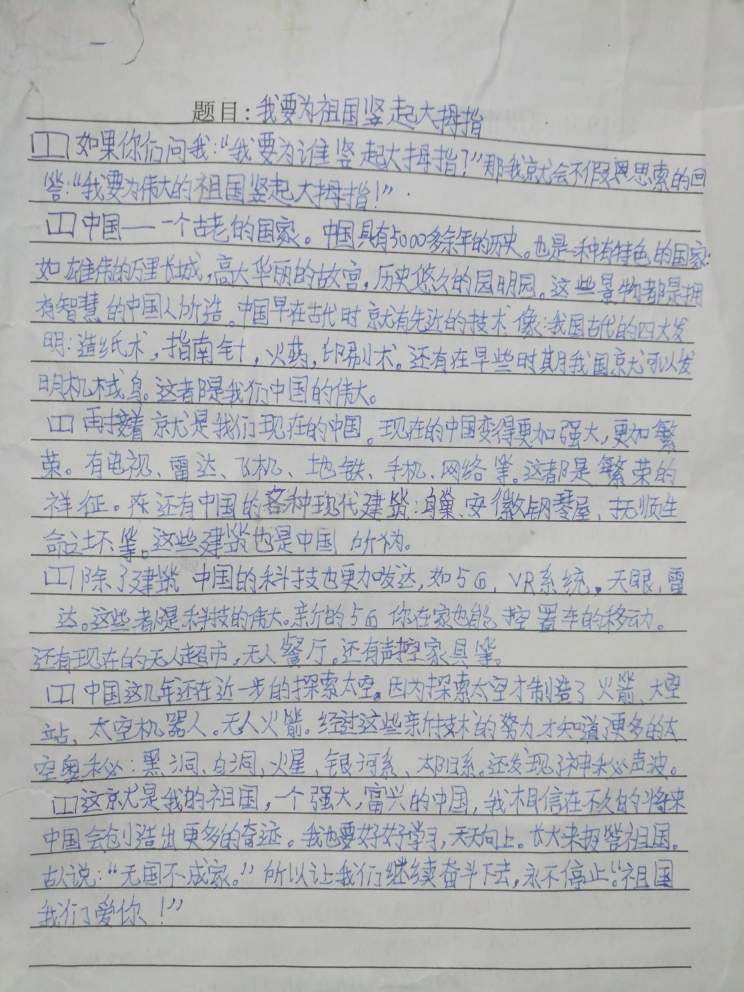 题目:我要为祖国竖起大拇指
如果你们问我:“我要为谁竖起大拇指?”那我就会不假思索的回
答:“我要为伟大的祖国竖起大拇指!”
中国——一个古老的国家。中国具有5000多余年的历史。也是一种有特色的国家:
如雄伟的万里长城,高大华丽的故宫,历史悠久的园明园。这些景物都是拥
有智慧的中国人所造。中国早在古代时就有先近的技术像:我国古代的四大发
明:造纸术,指南针,火药,印刷术。还有在早些时期我国就可以发
明机械鸟。这都是我们中国的伟大。
再接着就是我们现在的中国。现在的中国变得更加强大,更加繁
荣。有电视、雷达、飞机、地铁、手机、网络等。这都是繁荣的
祥征。还有中国的各种现代建筑:鸟巢、安徽钢琴屋、抚顺生
命之环等。这些建筑也是中国所为。
除了建筑中国的科技也更加发达,如5G,VR系统。天眼,雷
达。这些都是科技的伟大。新的5G你在家也能控置车的移动。
还有现在的无人超市,无人餐厅。还有声控家具等。
中国这几年还在近一步的探索太空。因为探索太空才制造了火箭、太空
站、太空机器人。无人火箭。经过这些新付技术的努力才知道了更多的太
空奥秘:黑洞、白洞、火星、银河系、太阳系。还发现了神秘声波。
这就是我的祖国,一个强大,富兴的中国,我相信在不久的将来
中国会创造出更多的奇迹。我也要好好学习,天天向上。长大来报答祖国。
古人说:“无国不成家。”所以让我们继续奋斗下去,永不停止。“祖国
我们爱你!”